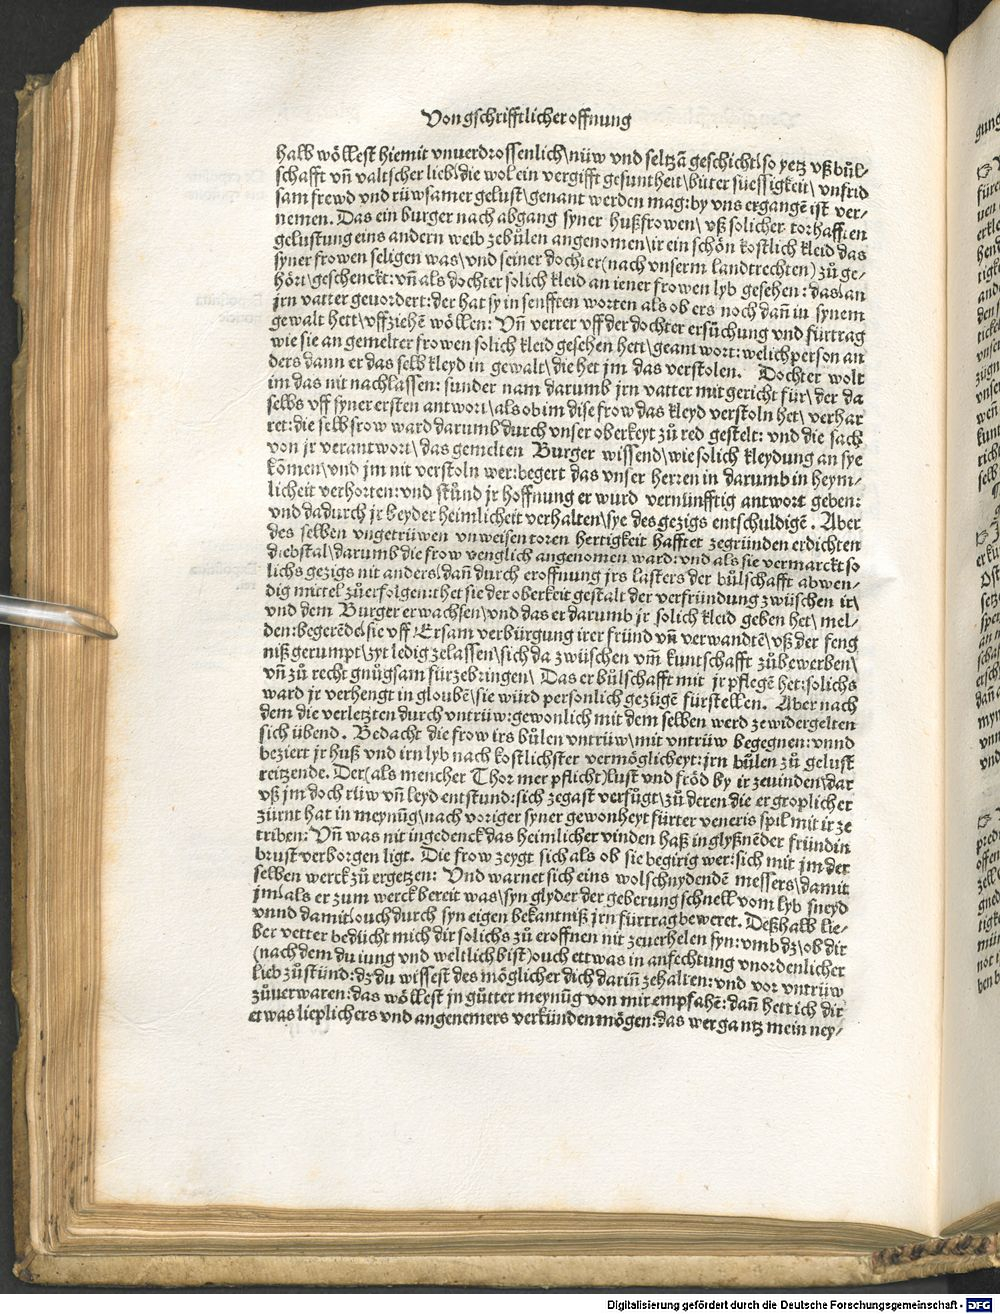 Von gschrifftlicher offnung
halb wöllest hiemit vnuerdrossenlich\nüw vnd seltzā geschicht\so yetz vß bůl⸗
schafft vñ valtscher lieb\die wol ein vergifft gesuntheit\biter süessigkeit\vnfrid
sam frewd vnd rüwsamer gelust\genant werden mag:by vns ergangē ist ver⸗
nemen. Das ein burger nach abgang syner hußfrowen\vß solicher torhafften
gelustung eins andern weib zebůlen angenomen\ir ein schön kostlich kleid das
syner frowen seligen was\vnd seiner dochter(nach vnserm landtrechten) zů ge⸗
hört\geschenckt:vñ als dochter solich kleid an iener frowen lyb gesehen: das\an
jrn vatter geuordert:der hat sy in senfften worten als ob ers noch dañ in synem
gewalt hett\vffziehē wöllen: Vñ verrer vff der dochter ersůchung vnd fürtrag
wie sie an gemelter frowen solich kleid gesehen hett\geantwort:welich person an
ders dann er das selb kleyd in gewalt\die het jm das verstolen. Dochter wolt
im das nit nachlassen: sunder nam darumb jrn vatter mit gericht für\der da
selbs vff syner ersten antwort\als ob im dise frow das kleyd verstoln het\verhar
ret:die selb frow ward darumb durch vnser oberkeyt zů red gestelt: vnd die sach
von jr verantwort\das gemelten Burger wissend\wie solich kleydung an sye
kōmen\vnd jm nit verstoln wer:begert das vnser herren in darumb in heym⸗
licheit verhorten:vnd stůnd jr hoffnung er wurd vernünfftig antwort geben:
vnd dadurch jr beyder heimlicheit verhalten\sye des gezigs entschuldigē. Aber
des selben vngetrüwen vnweisen toren hertigkeit hafftet zegründen erdichten
diebstal\darumb die frow venglich angenomen ward:vnd als sie vermarckt so
lichs gezigs nit anders\dañ durch eroffnung jrs lasters der bůlschafft abwen⸗
dig mittel zůerfolgen:thet sie der oberkeit gestalt der verfründung zwüschen ir\
vnd dem Burger erwachsen\vnd das er darumb jr solich kleid geben het\mel⸗
den:begerēde\sie vff Ersam verbürgung irer fründ vñ verwandtē\vß der feng
niß gerumpt\zyt ledig zelassen\sich da zwüschen vm̄ kuntschafft zůbewerben\
vñ zů recht gnůgsam fürzebringen\ Das er bůlschafft mit jr pflegē het:solichs
ward jr verhengt in gloubē\sie würd personlich gezügen fürstellen. Aber nach
dem die verletzten durch vntrüw:gewonlich mit dem selben werd ze widergelten
sich übend. Bedacht die frow irs bůlen vntrüw\mit vntrüw begegnen:vnnd
beziert jr huß vnd irn lyb nach kostlichster vermöglicheyt:jrn bůlen zů gelust
reitzende. Der(als mencher Thor mer pflicht)lust vnd fröd by ir zeuinden\dar
vß jm doch rüw vñ leyd entstund:sich zegast verfůgt\zů deren die er groplicher
zürnt hat in meynūg\nach voriger syner gewonheyt fürter veneris spil mit ir ze
triben: Vñ was nit ingedenck das heimlicher vinden haß in glyßnēder fründin
brust verborgen ligt. Die frow zeygt sich als ob sie begirig wer:sich mit jm der
selben werck zů ergetzen: Vnd warnet sich eins wolschnydendē messers\damit
jm\als er zum werck bereit was\syn glyder der geberung schnell vom lyb sneyd
vnnd damit\ouch durch syn eigen bekantniß jrn fürtrag beweret. Deßhalb lie⸗
ber vetter bedücht mich dir solichs zů eroffnen nit zeuerhelen syn:vmb dz\ob dir
(nach dem du iung vnd weltlich bist)ouch ettwas in anfechtung vnordenlicher
lieb zůstünd:dz du wissest des möglicher dich dariñ zehalten:vnd vor vntrüw
zůuerwaren:das wöllest jn gůtter meynūg von mir empfahē:dañ hett ich dir
etwas lieplichers vnd angenemers verkünden mögen:das wer gantz mein ney⸗
Digitalisierung gefördert durch die Deutsche Forschungsgemeinschaft - DFG